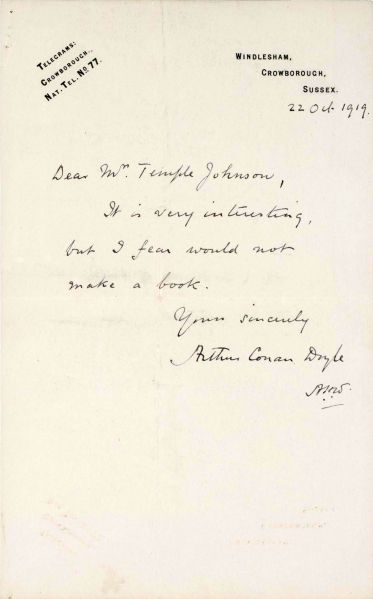 TELEGRAMS:
CROWBOROUGH.
NAT. TEL. No. 77.
WINDLESHAM,
CROWBOROUGH,
SUSSEX.
22 Oct 1919.
Dear Mr. Temple Johnson,
It is very interesting,
but I fear would not
make a book.
Yours sincerely
Arthur Conan Doyle